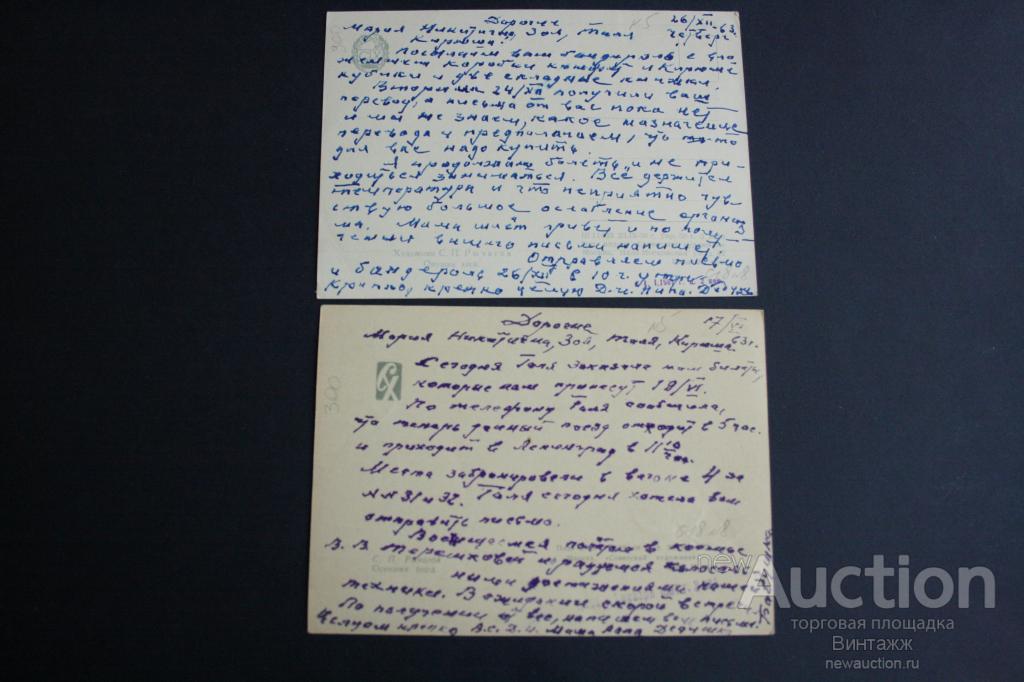 Дорогие
26/XII-63.
Мария Никитична, Зоя, Таля
четверг
Кирюша!
Посылаем вам бандероль с вло-
жением коробки конфет и Кирюше
кубики и две складные книжки.
Вторник 24/XII получили ваш
перевод, а письма от вас пока нет
и мы не знаем, какое назначение
перевода и предполагаем, что то
для вас надо купить.
Я продолжаю болеть и не при-
ходиться заниматься. Все держится
температура и что неприятно чув-
ствую большое ослабление организ
ма. Мама шлёт привет и по полу-
чении вашего письма напишет.
Художник С. П. Рычагов
Осенние
Отправляем письмо
и бандероль 26/XII в 10 г. утра
Крепко, крепко целую Папа. Дедушка
Дорогие
№5
17/VI
63г.
Мария Никитична, Зоя, Таля, Кирюша.
Сегодня Галя заказала нам билеты,
которые нам принесут 18/VI.
300
По телефону Галя сообщила,
что теперь данный поезд отходит в 5 час.
и приходит в Ленинград в 11 10 час.
Места забронировали в вагоне 4 за
№№ 31 и 32. Галя сегодня хотела вам
отправить письмо.
Восхищаемся полётом в космос
В. В. Терешковой и радуемся колоссаль
ными достижениями нашей
техники. В ожидании скорой встречи
По получении от вас, напишем вам письмо.
Целуем крепко Мама Папа Дедушка
Бабушка
newAuction
торговая площадка
Винтажж
newauction.ru